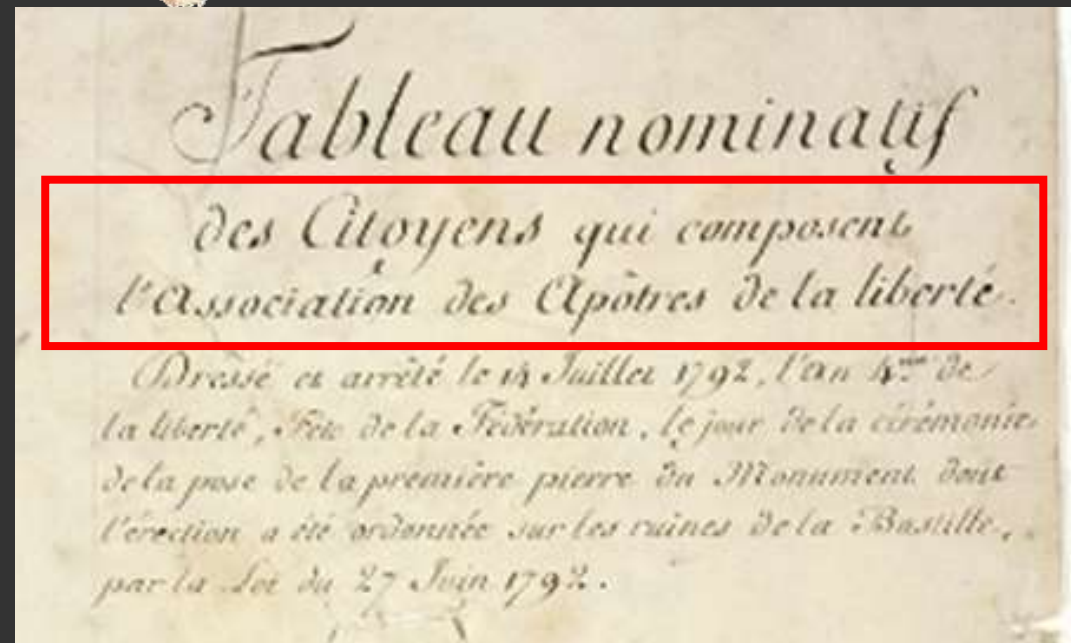 Tableau nominatif
des Citoyens qui composent
l'Association des Apôtres de la liberté.
Dressé et arrêté le 14 Juillet 1792, l'an 4.me de
la liberté, Fête de la Fédération, le jour de la cérémonie
de la pose de la première pierre du Monument dont
l'érection a été ordonnée sur les ruines de la Bastille,
par la Loi du 27 Juin 1792.